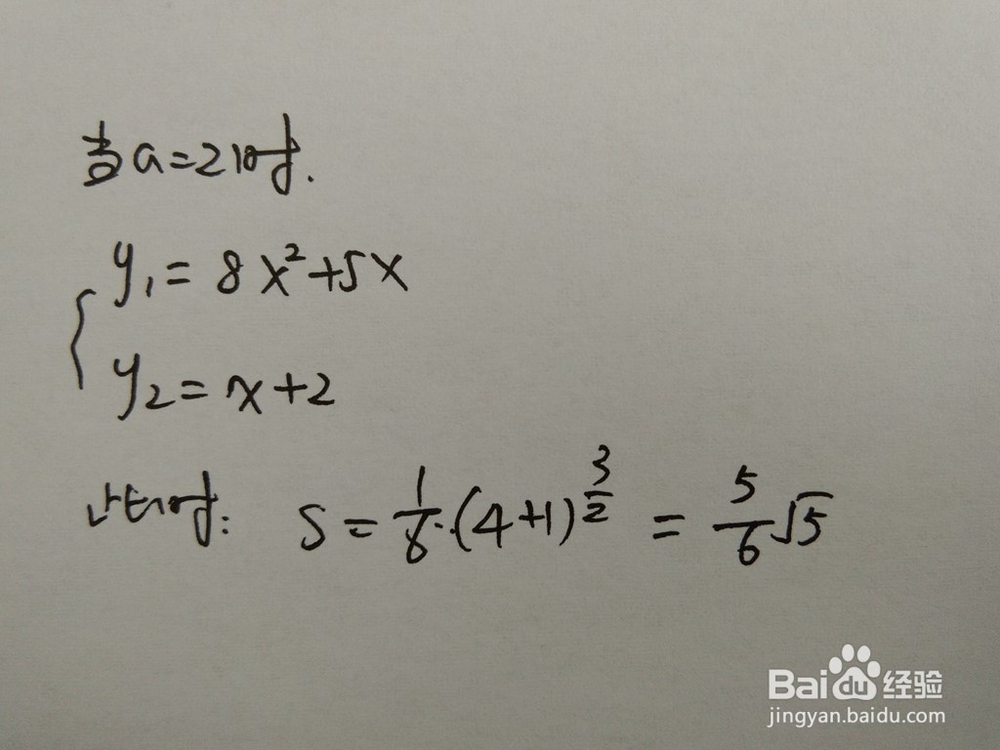 当a=2时.
y₁=8x²+5x
y₂=x+2
此时: S=1/6·(4+1)^(3/2)=5/6√5
Baidu经验
jingyan.baidu.com